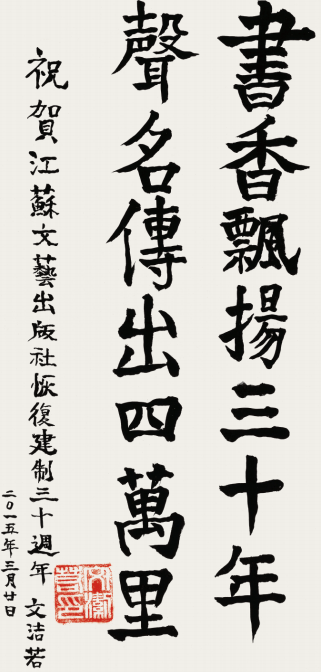 書香飄揚三十年
聲名傳出四萬里
祝賀江蘇文藝出版社恢復建制三十週年 文洁若
二〇一五年三月廿日